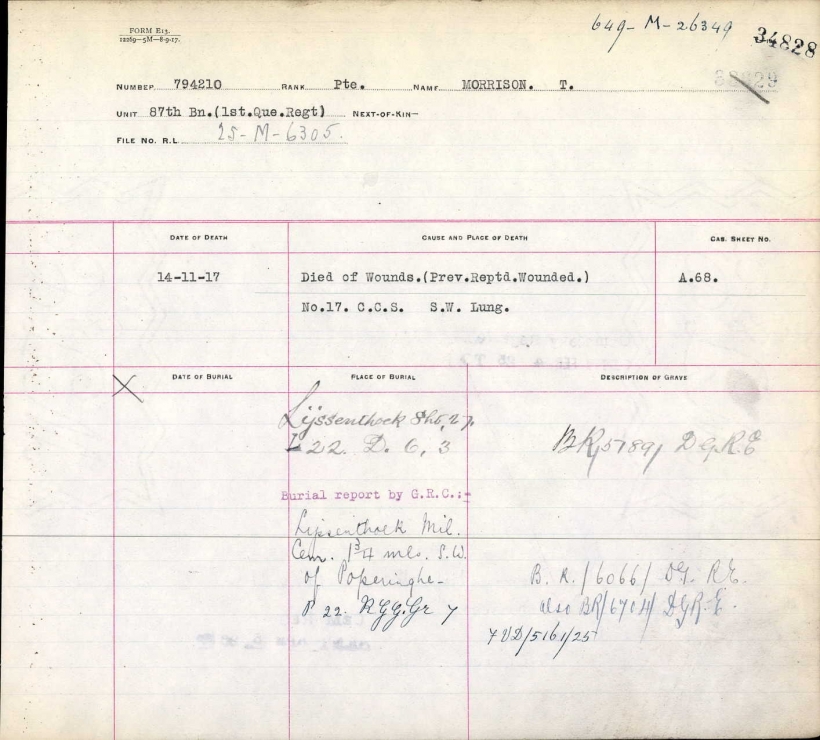 FORM E13.
12269—5M—8-9-17.
649-M-26349
34828
NUMBER 794210 RANK Pte. NAME MORRISON. T.
UNIT 87th Bn.(1st.Que.Regt) NEXT-OF-KIN—
FILE NO. R.L. 25-M-6305.
DATE OF DEATH CAUSE AND PLACE OF DEATH CAS. SHEET NO.
14-11-17 Died of Wounds.(Prev.Reptd.Wounded.) A.68.
No.17. C.C.S. S.W. Lung.
DATE OF BURIAL PLACE OF BURIAL DESCRIPTION OF GRAVE
Lijssenthoek Sht. 27.
L 22. D. 6. 3 BR/5789/ D.G.R.E
Burial report by G.R.C.:-
Lijssenthoek Mil.
Cem. 1¾ mls. S.W.
of Poperinghe- B.R./6066/ DG. RE.
P 22. Gr 7 also BR/6704/ DGR.E.
7VD/5161/25